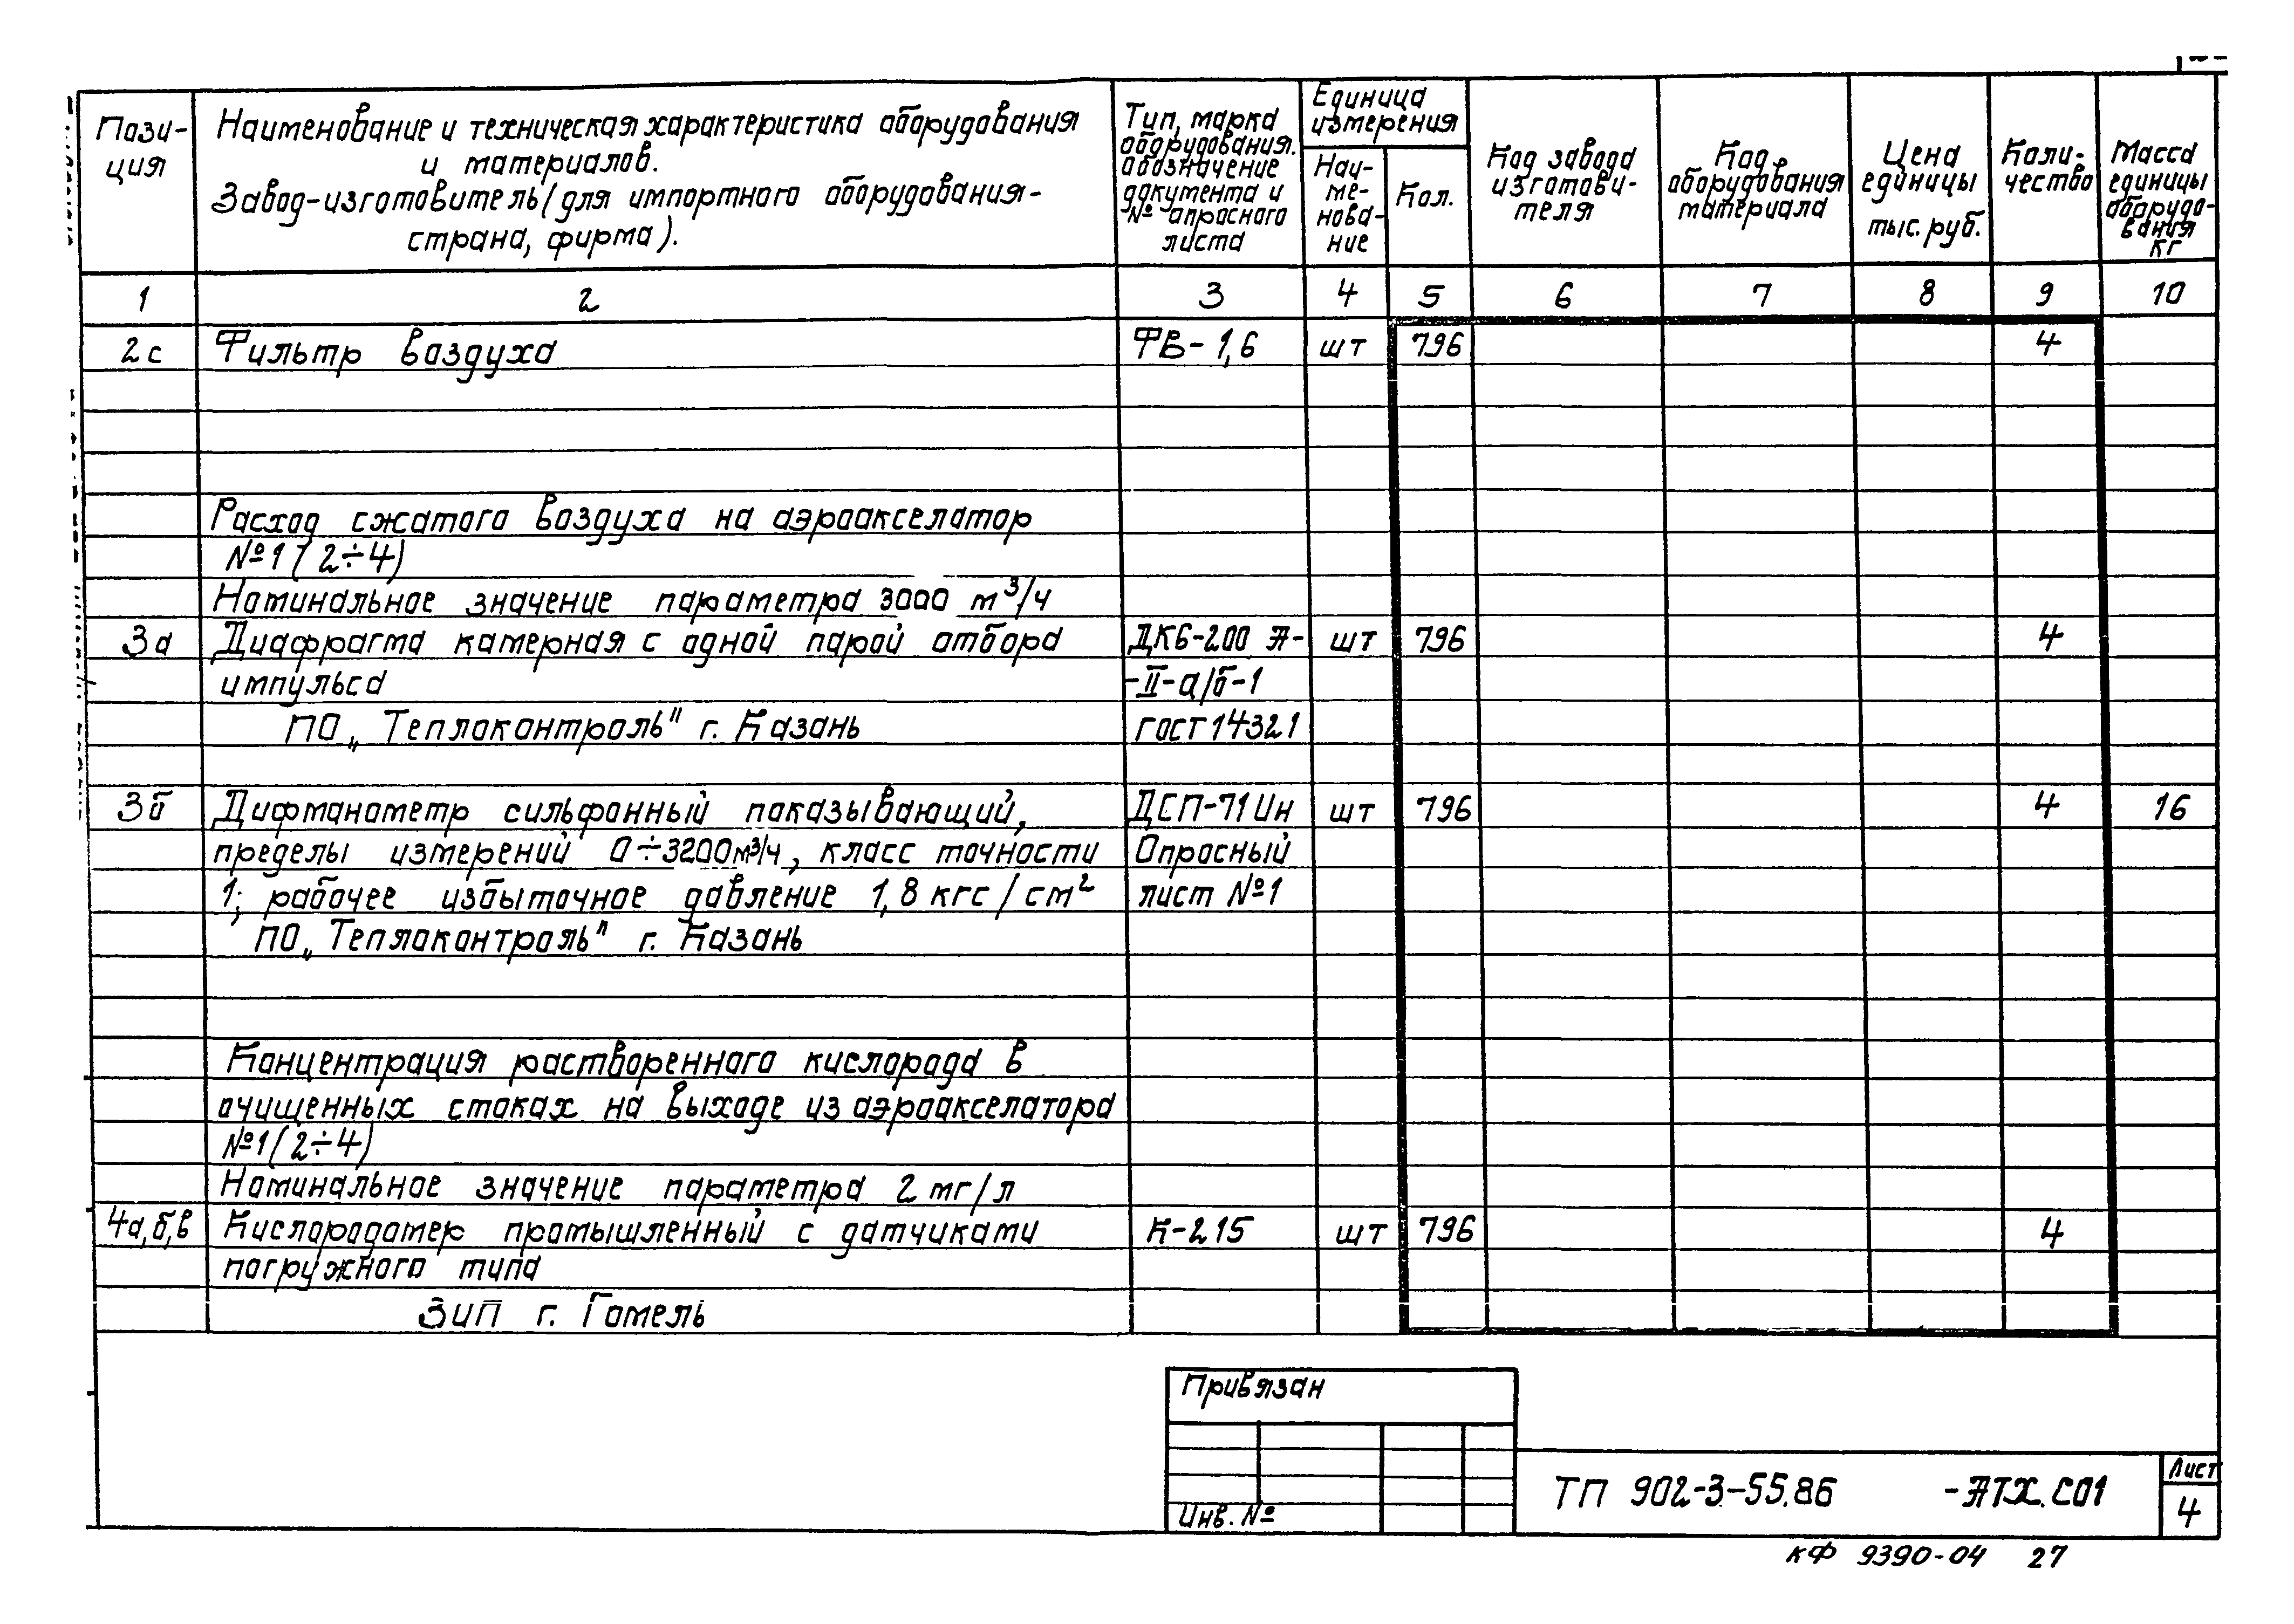 Пози-
ция
Наименование и техническая характеристика оборудования
и материалов.
Завод-изготовитель (для импортного оборудования-
страна, фирма).
Тип, марка
оборудования.
обозначение
документа и
№ опросного
листа
Единица
измерения
Наи-
ме-
нова-
ние
Кол.
Код завода
изготови-
теля
Код
оборудования
материала
Цена
единицы
тыс. руб.
Коли-
чество
Масса
единицы
оборудо-
вания
кг
1 2 3 4 5 6 7 8 9 10
2с Фильтр воздуха ФВ-1,6 шт 796 4
Расход сжатого воздуха на аэроакселатор
№1 (2÷4)
Номинальное значение параметра 3000 м³/ч
3а Диафрагма камерная с одной парой отбора ДК6-200 А- шт 796 4
импульса -II-а/б-1
ПО „Теплоконтроль" г. Казань гост 14321
3б Дифманометр сильфонный показывающий, ДСП-71Ин шт 796 4 16
пределы измерений 0÷3200м³/ч, класс точности Опросный
1; рабочее избыточное давление 1,8 кгс/см² лист №1
ПО „Теплоконтроль" г. Казань
Концентрация растворенного кислорода в
очищенных стоках на выходе из аэроакселатора
№1 (2÷4)
Номинальное значение параметра 2 мг/л
4а,б,в Кислородомер промышленный с датчиками К-215 шт 796 4
погружного типа
ЗИП г. Гомель
Привязан
Инв. №
ТП 902-3-55.86 -АТХ.С01
Лист
4
кф 9390-04 27